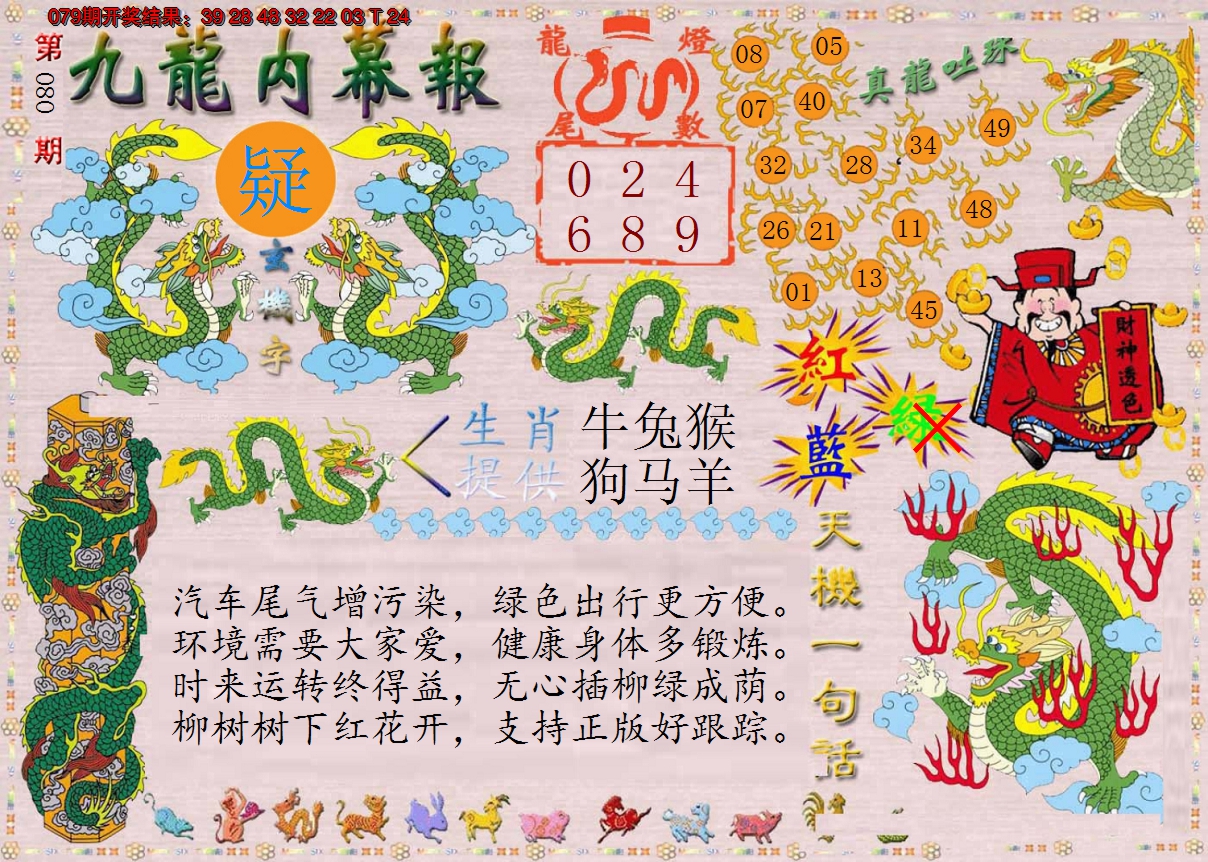 079期开奖结果：39 28 46 32 22 03 T 24
第080期
九龍内幕報
疑
玄機字
龍燈
尾數
0 2 4
6 8 9
真龍吐珠
08 05
07 40
32 28 34 49
26 21 11 48
01 13 45
紅
綠
藍
財神透色
生肖
提供
牛兔猴
狗马羊
天機一句话
汽车尾气增污染，绿色出行更方便。
环境需要大家爱，健康身体多锻炼。
时来运转终得益，无心插柳绿成荫。
柳树树下红花开，支持正版好跟踪。